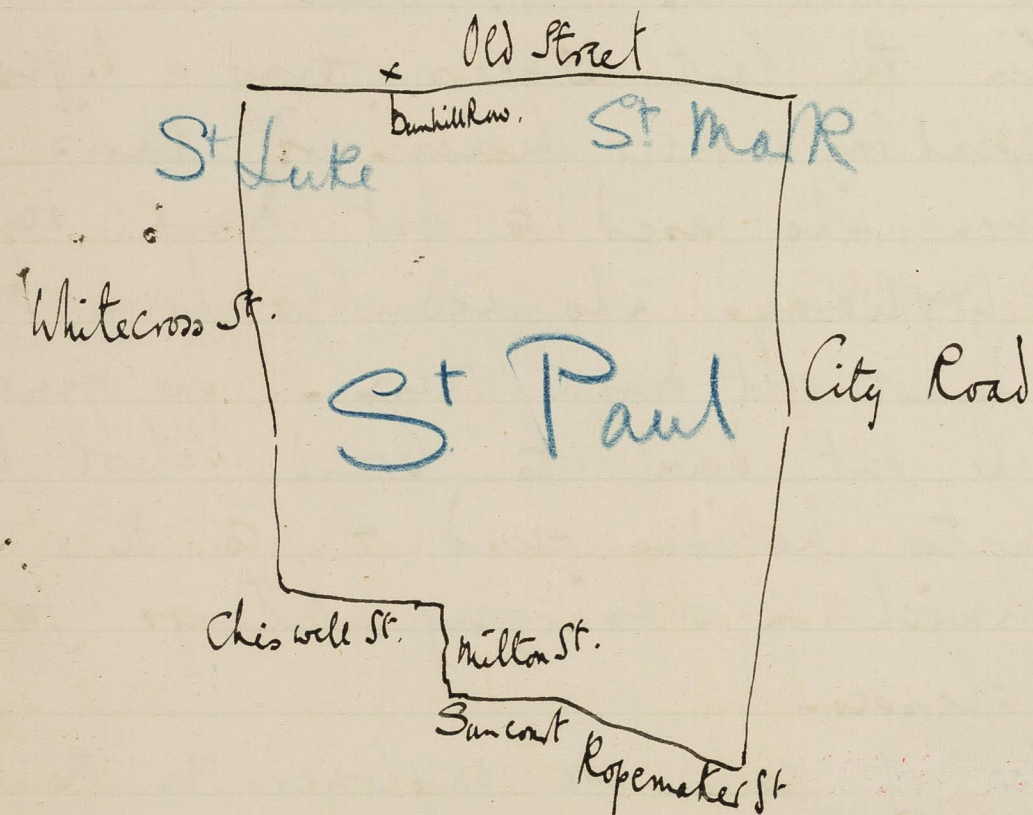 Old Street
x
Bunhill Row.
St Luke
St Mark
Whitecross St.
St Paul
City Road
Chiswell St.
Milton St.
Sun court
Ropemaker St